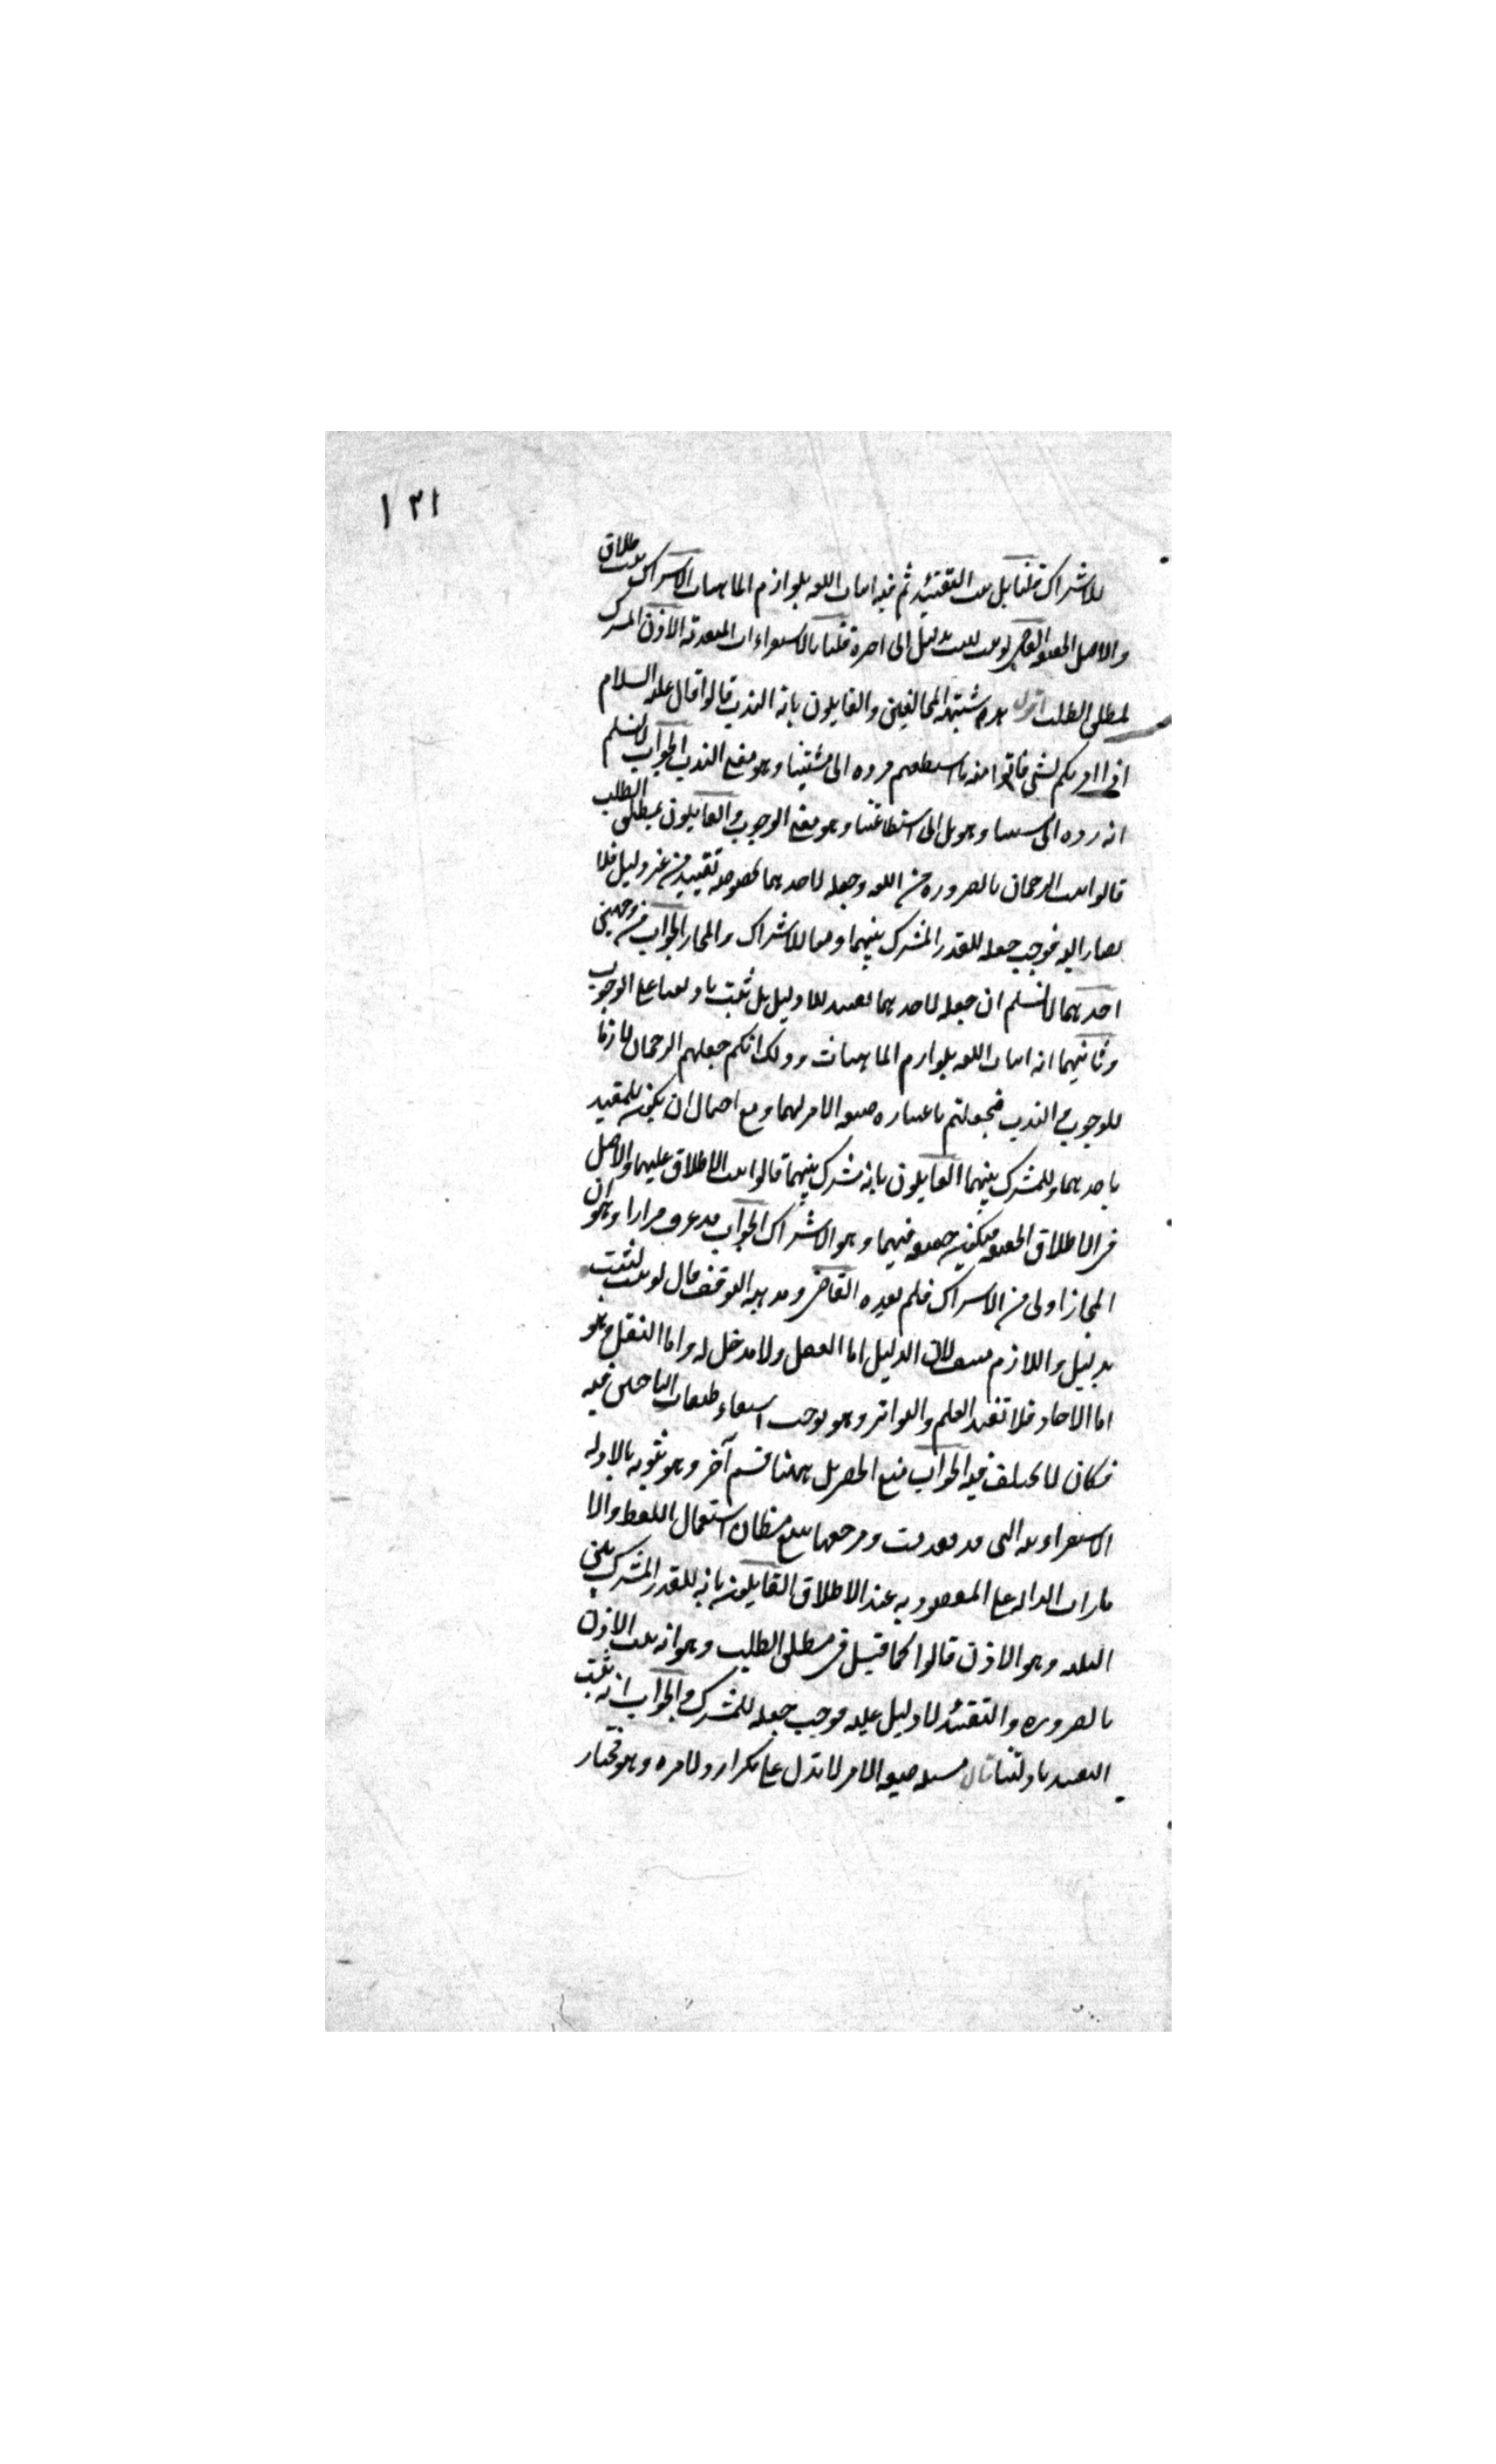 ١٢١
للاشتراك قلنا بل ثبت التقييد ثم فيه اثبات اللغة بلوازم الماهيات الاشتراك ثبت الاطلاق
والاصل الحقيقة القاضي لو ثبت لثبت بدليل الى اخره قلنا بالاستقراءات المتقدمة الاذن المشترك
لمطلق الطلب اقول هذه شبهة المخالفين والقايلون بانه الندب قالوا قال عليه السلام
اذا امرتكم بشي فاتوا منه ما استطعتم فرده الى مشيتنا وهو معنى الندب الجواب لا نسلم
انه رده الى مشيتنا وهو بل الى استطاعتنا وهو معنى الوجوب والقايلون بمطلق الطلب
قالوا ثبت الرجحان بالضرورة من اللغة وجعله لاحدهما بخصوصه تقييد من غير دليل فلا
يصار اليه فوجب جعله للقدر المشترك بينهما دفعا للاشتراك والمجاز الجواب من وجهين
احدهما لا نسلم ان جعله لاحدهما تقييد بلا دليل بل ثبت بادلتنا على الوجوب
وثانيهما انه اثبات اللغة بلوازم الماهيات وذلك انكم جعلتم الرجحان لازما
للوجوب والندب فجعلتم باعتباره صيغة الامر لهما مع احتمال ان يكون للمقيد
باحدهما وللمشترك بينهما القايلون بانه مشترك بينهما قالوا ثبت الاطلاق عليهما والاصل
في الاطلاق الحقيقة فيكون حقيقة فيهما وهو الاشتراك الجواب قد عرف مرارا وهو ان
المجاز اولى من الاشتراك فلم يفده القاضي ومذهبه التوقف قال لو ثبت لثبت
بدليل واللازم منتف لان الدليل اما العقل ولا مدخل له واما النقل وهو
اما الاحاد فلا تفيد العلم والتواتر وهو يوجب استواء طبقات الباحثين فيه
فكان لا يختلف فيه الجواب منع الحصر بل ههنا قسم آخر وهو ثبوته بالادلة
الاستقرائية التي قد تقدمت ومرجعها تتبع مظان استعمال اللفظ والا
مارات الدالة على المقصود به عند الاطلاق القايلون بانه للقدر المشترك بين
الثلثة وهو الاذن قالوا كما قيل في مطلق الطلب وهو انه ثبت الاذن
بالضرورة والتقييد لا دليل عليه فوجب جعله للمشترك والجواب انه ثبت
التقييد بادلتنا قال مسئلة صيغة الامر لا تدل على تكرار ولا مرة وهو مختار